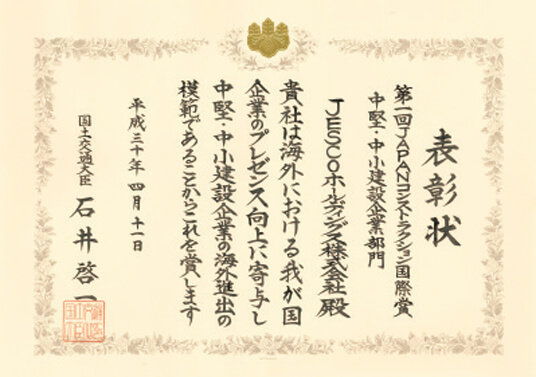 表彰状
第一回JAPANコンストラクション国際賞
中堅・中小建設企業部門
JESCOホールディングス株式会社 殿
貴社は海外における我が国
企業のプレゼンス向上に寄与し
中堅・中小建設企業の海外進出の
模範であることからこれを賞します
平成三十年四月十一日
国土交通大臣 石井啓一